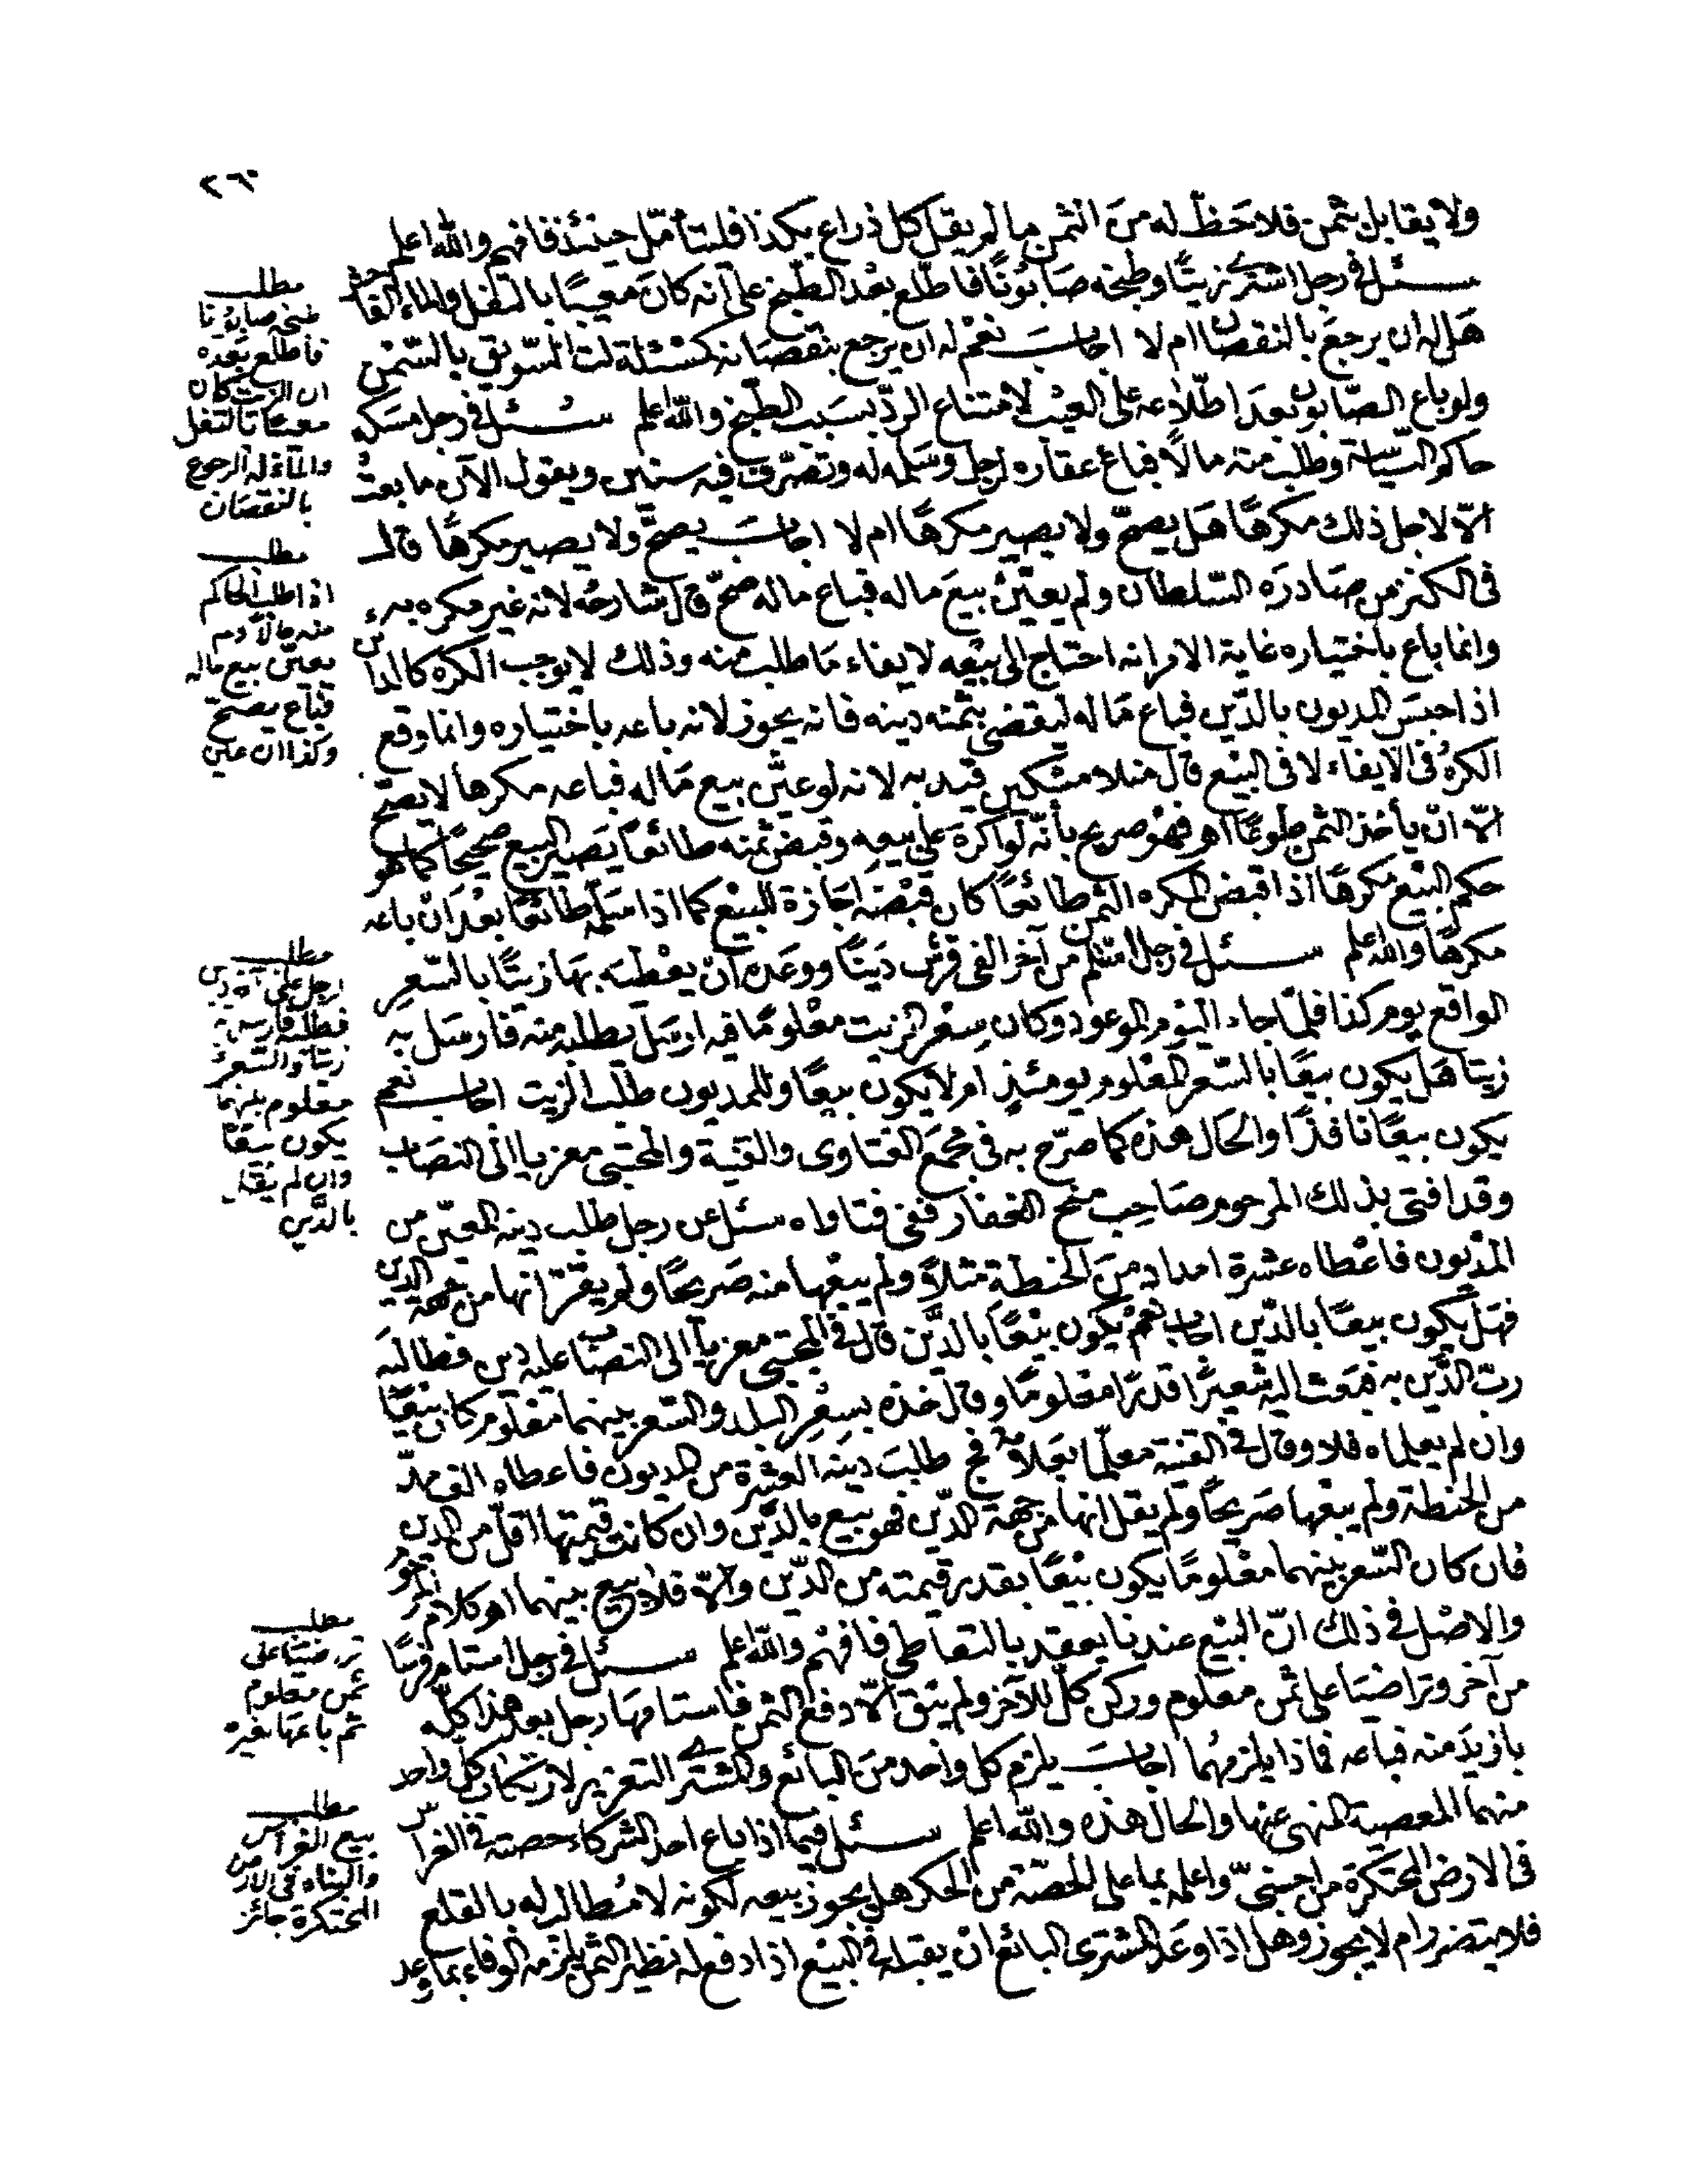 ٢٦٠
ولا يقابل بثمن فلا حَظّ له منَ الثمن ما لم يقل كل ذراع بكذا فليتأمّل حينئذ فافهم والله اعلم
سئل فى رجل اشترى زيتًا وطبخه صَابُونًا فاطّلع بعْد الطّبخ على أنه كانَ معيبًا بالتفل والماء الفاحش
هَل له ان يرجعَ بالنقصان ام لا اجابَ نعَم له ان يرجع بنقصَانه كمسْئلة لت السّويق بالسّمْن
ولو باع الصّابون بعدَ اطّلاعه على العيْب لامتناع الردّ بسَبب الطّبخ والله اعلم سُئل فى رجل مسَكه
حاكم السّياسة وطلب منه مالًا فباع عقاره لرجل وسَلمه له وتصَرّف فيه سنين ويقول الآن ما بعتُ
الّا لاجل ذلك مكرهًا هَل يصحّ ولا يصير مكرهًا ام لا اجابَ يصحّ ولا يصير مكرهًا قال
فى الكنز من صَادرَه السّلطان ولم يعيّنْ بيعَ ماله فباع ماله صحّ قال شارحُه لانه غير مكره به
وانما باع باختياره غاية الامر انه احتاج الى بيْعه لايفاء مَا طلب منه وذلك لا يوجب الكره كالدائن
اذا حبسَ المديون بالدّين فباع مَا له ليقضى بثمنه دينه فانه يجوز لانه باعه باختياره وانما وقع
الكرهُ فى الايفاء لا فى البيْع قال منلا مسْكين قيد به لانه لو عيّن بيع مَاله فباعه مكرها لا يصحّ
الّا انْ يأخذ الثمن طوعًا اهـ فهْو صريح بأنّه لو اكرهَ على بيعِه وقبض ثمنه طائعًا يَصير البيع صحيحًا كما هو
حكم البيْع مكرهًا اذا قبض المكره الثمن طائعًا كان قبْضه اجَازة للبيْع كما اذا سَلّم طائعًا بعْدَ انْ باعه
مكرهًا والله اعلم سئل فى رجل استلم من آخر الفى قرش دَينًا ووعَده أنْ يعْطيَه بهَا زيتًا بالسّعرِ
الواقع يوم كذا فلمّا جاء اليَوم الموعود وكان سِعْر الزيت معْلومًا فيه ارسَل يطلبه منه فارسَل به
زيتا هَل يكون بيعًا بالسّعر المعْلوم يومئذٍ ام لا يكون بيعًا وللمديون طلَب الزيت اجابَ نعم
يكون بيعًا نافذًا والحَال هذه كما صَرّح به فى مجمَع الفتاوى والقنية والمجتبى معزيا الى النصَاب
وقد افتى بذلك المرحوم صَاحِب منح الغفار ففى فتاواه سئل عن رجل طلب دينه المعيّن من
المدْيون فاعْطاه عشرة امداد منَ الحنطة مثلاً ولم يبعْها منه صَريحًا ولم يقرّ انها من جهة الدين
فهَل يكون بيعًا بالدّين اجاب نعَمْ يكون بيْعًا بالدّين قال فى المجتبى معزيا الى النصَاب عليه دين فطالبَه
ربّ الدّين به فبَعث اليه شعيرًا قدرًا معْلومًا وقال خذه بسِعْرِ البلد والسّعر بينهما معْلوم كان بيْعًا
وان لم يعلماه فلا وقال فى القنية معلّما بعَلامة فج طلبَ دينَه العشرة من المديون فاعطاه الف مدّ
من الحنطة ولم يبعْها صَريحًا ولم يقل انها من جهَة الدّين فهو بيع بالدّين وان كانت قيمتها اقلّ من الدين
فان كان السّعر بينهما معْلومًا يكون بيْعًا بقدر قيمته من الدّين والّا فلا بيع بينهما اهـ كلام المرحوم
والاصْل فى ذلك انّ البيْع عندنا ينعقد بالتعاطى فافهَم والله اعلم سئل فى رجل استام فرسًا
من آخر وتراضيَا على ثمن معلوم وركن كلّ للآخر ولم يبْق الّا دفع الثمن فاستامهَا رجل بعد هذا كلّه
بازيدَ منه فباعه فماذا يلزمهُما اجابَ يلزم كل واحد منَ البائع والمشترى التعزير لارتكاب كلّ واحد
منهما المعصية المنهى عنها والحال هذه والله اعلم سئل فيما اذا باع احد الشركاء حصته فى الغراس
فى الارض المحتكرة من اجنبىّ واعلمه بما على الحصّة من الحكر هل يجوز بيعه لكونه لا مُطالب له بالقلع
فلا يتضرر ام لا يجوز وهل اذا وعَد المشترى البائع انْ يقيله فى البيْع اذا دفع له نظير الثمن يلزمه الوفاء بما وعد
مطلب
طبخه صابونا
فاطلع بَعده
ان الزيت كان
معيبًا بالتفل
والماء له الرجوع
بالنقصَان
مطلب
اذا طلب الحاكم
منه مالًا ولم
يعيّن بيع ماله
فبَاع يصحّ
وكذا ان عين
مطلب
لرجل على آخر دين
فطلبه فارسل
زيتا والسّعر
معلوم بينهمَا
يكون بيعًا
وان لم يقل
بالدّين
مطلب
تراضيَا على
ثمن معلوم
ثم باعهَا لغيره
مطلب
بيع الغراس
والبناء فى الارض
المحتكرة جائز